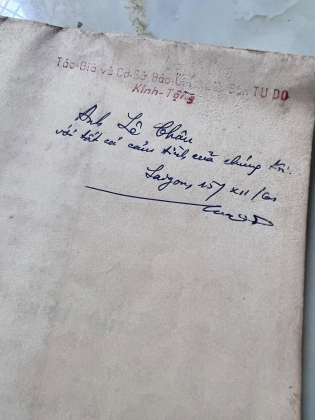 Tác-Giả và Cơ-Sở Báo- Bản TỰ DO
Kính-Tặng
Anh Lê Chân
với tất cả cảm tình của chúng tôi.
Saigon, 15/XII/60